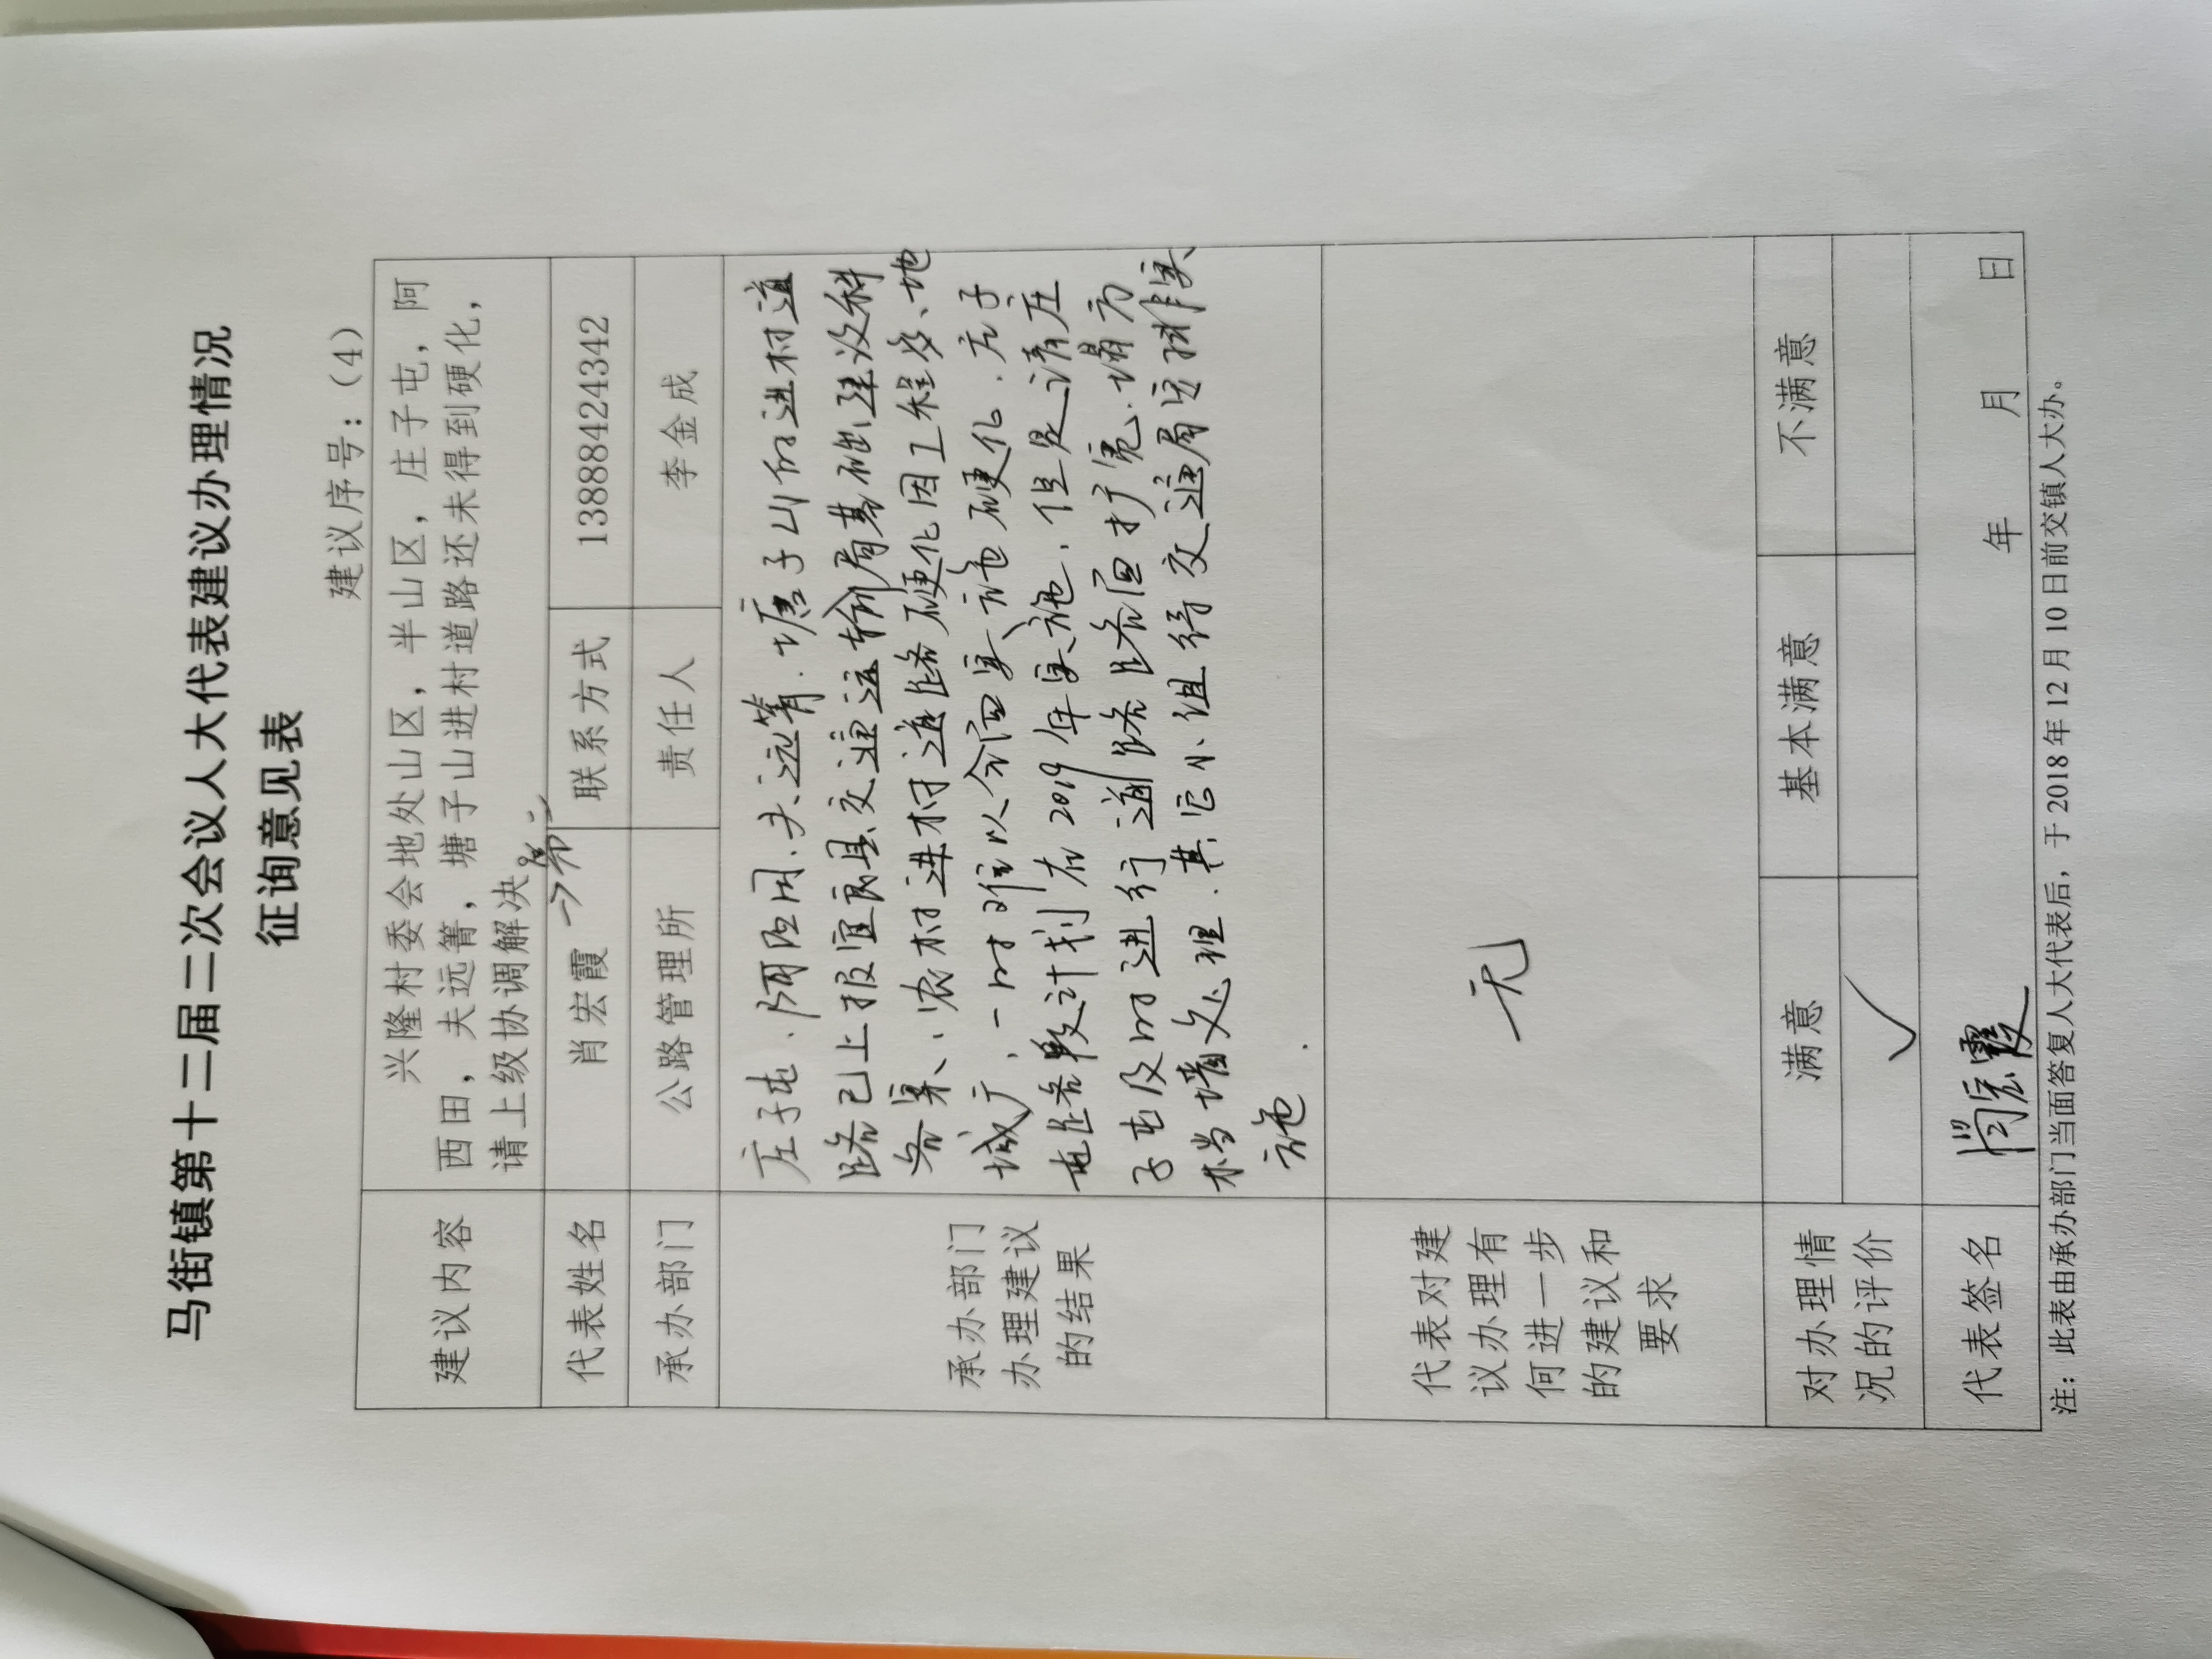 马街镇第十二届二次会议人大代表建议办理情况
征询意见表
建议序号：（4）
建议内容
兴隆村委会地处山区，半山区，庄子屯，阿
西田，夫远箐，塘子山进村道路还未得到硬化，
请上级协调解决。
代表姓名
肖宏霞
联系方式
13888424342
承办部门
公路管理所
责任人
李金成
承办部门
办理建议
的结果
庄子屯、阿西田、夫远箐、塘子山的进村道
路已上报宜良县交通运输局基础建设科
备案、农村进村道路硬化因工程多、地
域广，一时难以全面实施硬化．庄子
屯路段计划在2019年实施．但是请庄
子屯及时进行道路路面扩宽．塌方
档墙处理．其它小组待交通局安排实
施．
代表对建
议办理有
何进一步
的建议和
要求
无
对办理情
况的评价
满意
基本满意
不满意
✓
代表签名
肖宏霞
年 月 日
注：此表由承办部门当面答复人大代表后，于2018年12月10日前交镇人大办。